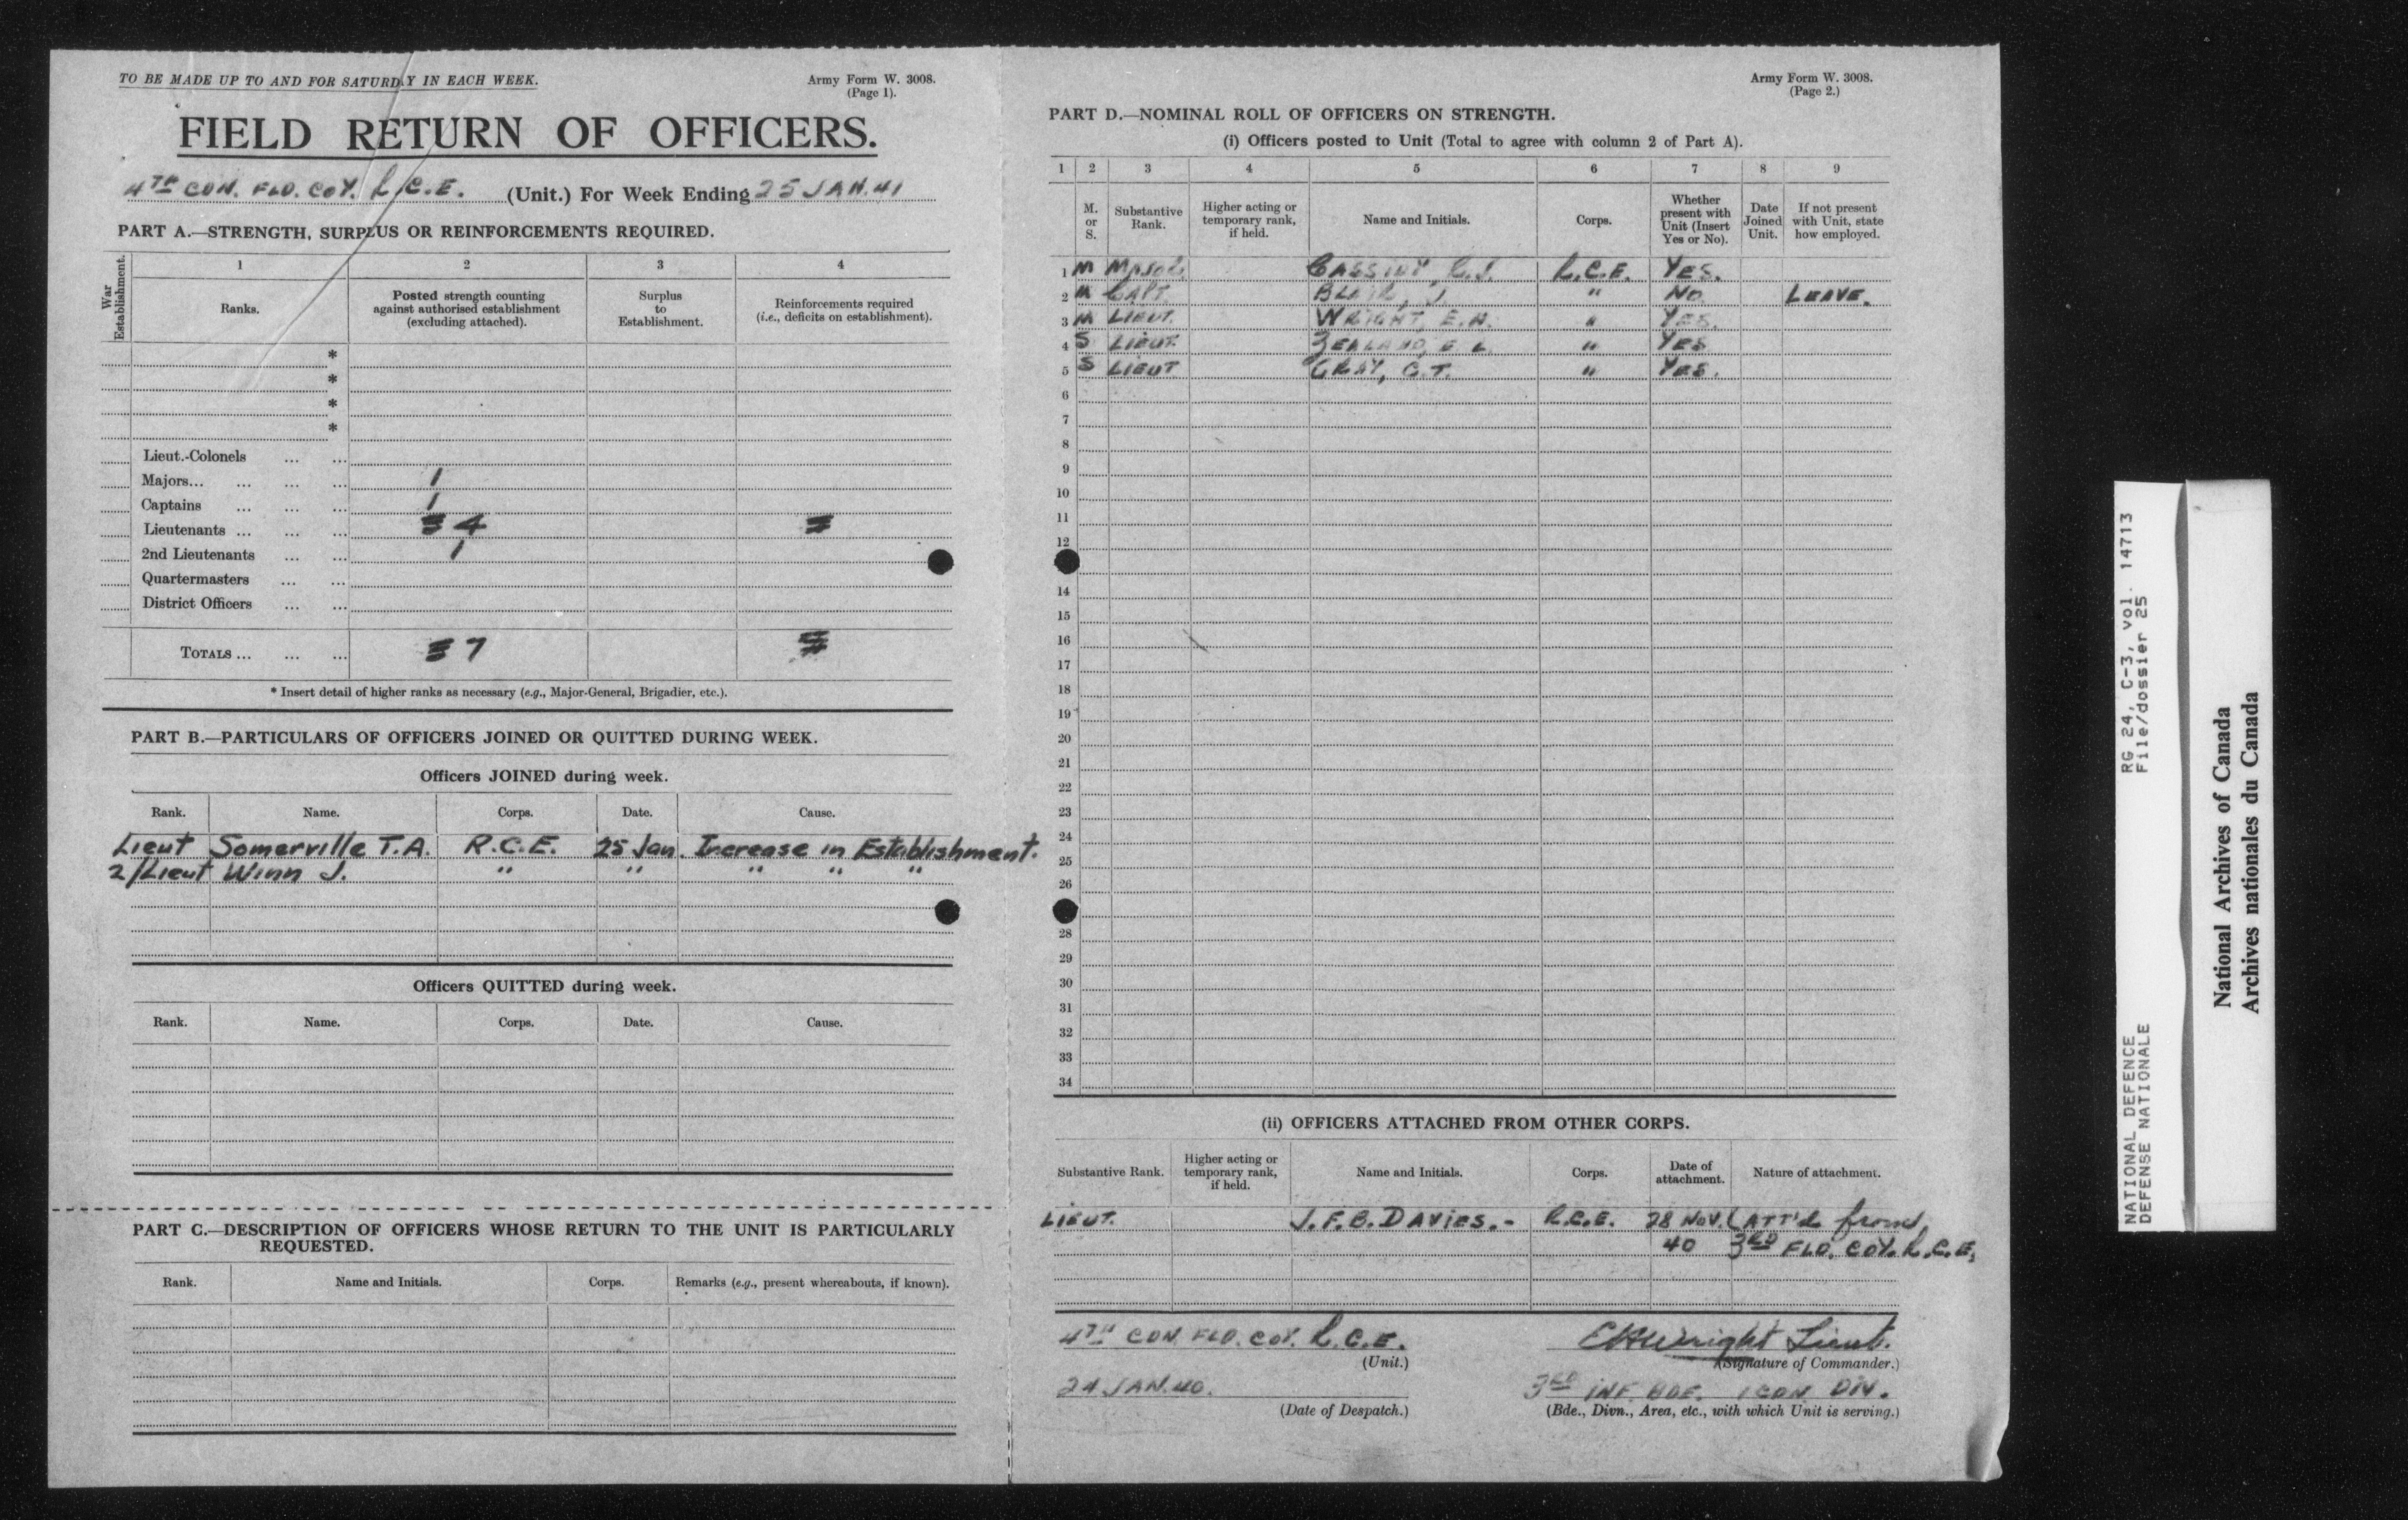 TO BE MADE UP TO AND FOR SATURDAY IN EACH WEEK.
Army Form W. 3008.
(Page 1).
FIELD RETURN OF OFFICERS.
4TH CDN. FLD. COY. R.C.E. (Unit.) For Week Ending 25 JAN. 41
PART A.—STRENGTH, SURPLUS OR REINFORCEMENTS REQUIRED.
War Establishment.
1 2 3 4
Ranks.
Posted strength counting
against authorised establishment
(excluding attached).
Surplus
to
Establishment.
Reinforcements required
(i.e., deficits on establishment).
*
*
*
*
Lieut.-Colonels ... ...
Majors... ... ... ... 1
Captains ... ... ... 1
Lieutenants ... ... ... 4
2nd Lieutenants ... ... 1
Quartermasters ... ...
District Officers ... ...
TOTALS ... ... ... 7
* Insert detail of higher ranks as necessary (e.g., Major-General, Brigadier, etc.).
PART B.—PARTICULARS OF OFFICERS JOINED OR QUITTED DURING WEEK.
Officers JOINED during week.
Rank. Name. Corps. Date. Cause.
Lieut Somerville T.A. R.C.E. 25 Jan. Increase in Establishment.
2/Lieut Winn J. " " " " "
Officers QUITTED during week.
Rank. Name. Corps. Date. Cause.
PART C.—DESCRIPTION OF OFFICERS WHOSE RETURN TO THE UNIT IS PARTICULARLY
REQUESTED.
Rank. Name and Initials. Corps. Remarks (e.g., present whereabouts, if known).
Army Form W. 3008.
(Page 2.)
PART D.—NOMINAL ROLL OF OFFICERS ON STRENGTH.
(i) Officers posted to Unit (Total to agree with column 2 of Part A).
1 2 3 4 5 6 7 8 9
M.
or
S.
Substantive
Rank.
Higher acting or
temporary rank,
if held.
Name and Initials.
Corps.
Whether
present with
Unit (Insert
Yes or No).
Date
Joined
Unit.
If not present
with Unit, state
how employed.
1 M MAJOR CASSIDY, R.J. R.C.E. YES.
2 M CAPT. BLAIR, J. " NO. LEAVE.
3 M LIEUT. WRIGHT, E.H. " YES.
4 S LIEUT. ZEALAND, E.L. " YES
5 S LIEUT GRAY, C.T. " YES.
6
7
8
9
10
11
12
14
15
16
17
18
19
20
21
22
23
24
25
26
28
29
30
31
32
33
34
(ii) OFFICERS ATTACHED FROM OTHER CORPS.
Substantive Rank.
Higher acting or
temporary rank,
if held.
Name and Initials.
Corps.
Date of
attachment.
Nature of attachment.
LIEUT. J.F.B. DAVIES.- R.C.E. 28 NOV. (ATT'd from
40 3RD FLD. COY. R.C.E.
4TH CDN. FLD. COY. R.C.E.
(Unit.)
EHWright Lieut.
(Signature of Commander.)
24 JAN. 40.
(Date of Despatch.)
3RD INF. BDE. 1 CDN DIV.
(Bde., Divn., Area, etc., with which Unit is serving.)
NATIONAL DEFENCE RG 24, C-3, vol. 14713
DEFENSE NATIONALE File/dossier 25
National Archives of Canada
Archives nationales du Canada